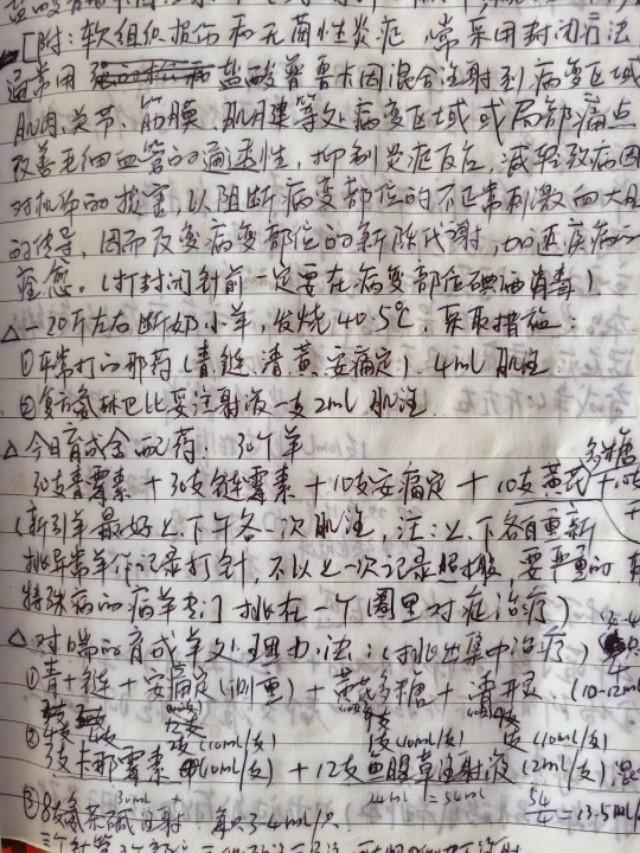 [附:软组织损伤和无菌性炎症 常采用封闭疗法
通常用 盐酸普鲁卡因混合注射到病变区域
肌肉、关节、筋膜、肌腱等处病变区域或局部痛点
改善毛细血管的通透性,抑制炎症反应,减轻致病因
对机体的损害,以阻断病变部位的不正常刺激向大脑
的传导,因而改变病变部位的新陈代谢,加速疾病的
痊愈。(打封闭针前一定要在病变部位碘酒消毒)
△一20斤左右断奶小羊,发烧40.5℃,采取措施:
①平常打的那药(青链、清黄、安痛定).4ml 肌注
②复方氨林巴比妥注射液一支2ml 肌注
△今日育成舍配药:30个羊
30支青霉素+30支链霉素+10支安痛定+10支黄芪多糖
(新引羊最好上.下午各一次肌注,注:上.下各自重新
挑异常羊作记录打针,不以上一次记录照搬,要严重的
特殊病的病羊专门挑在一个圈里对症治疗)
△对喘的育成羊处理办法:(挑出集中治疗)
①青+链+安痛定(侧重)+黄芪多糖+ (10-12ml
(10ml/支) (10ml/支) (10ml/支)
② 3支卡那霉素(10ml/支)+12支鱼腥草注射液(2ml/支)
30ml 24ml =54ml 54/4=13.5ml/
③8支氨茶碱注射 每只3-4ml/只